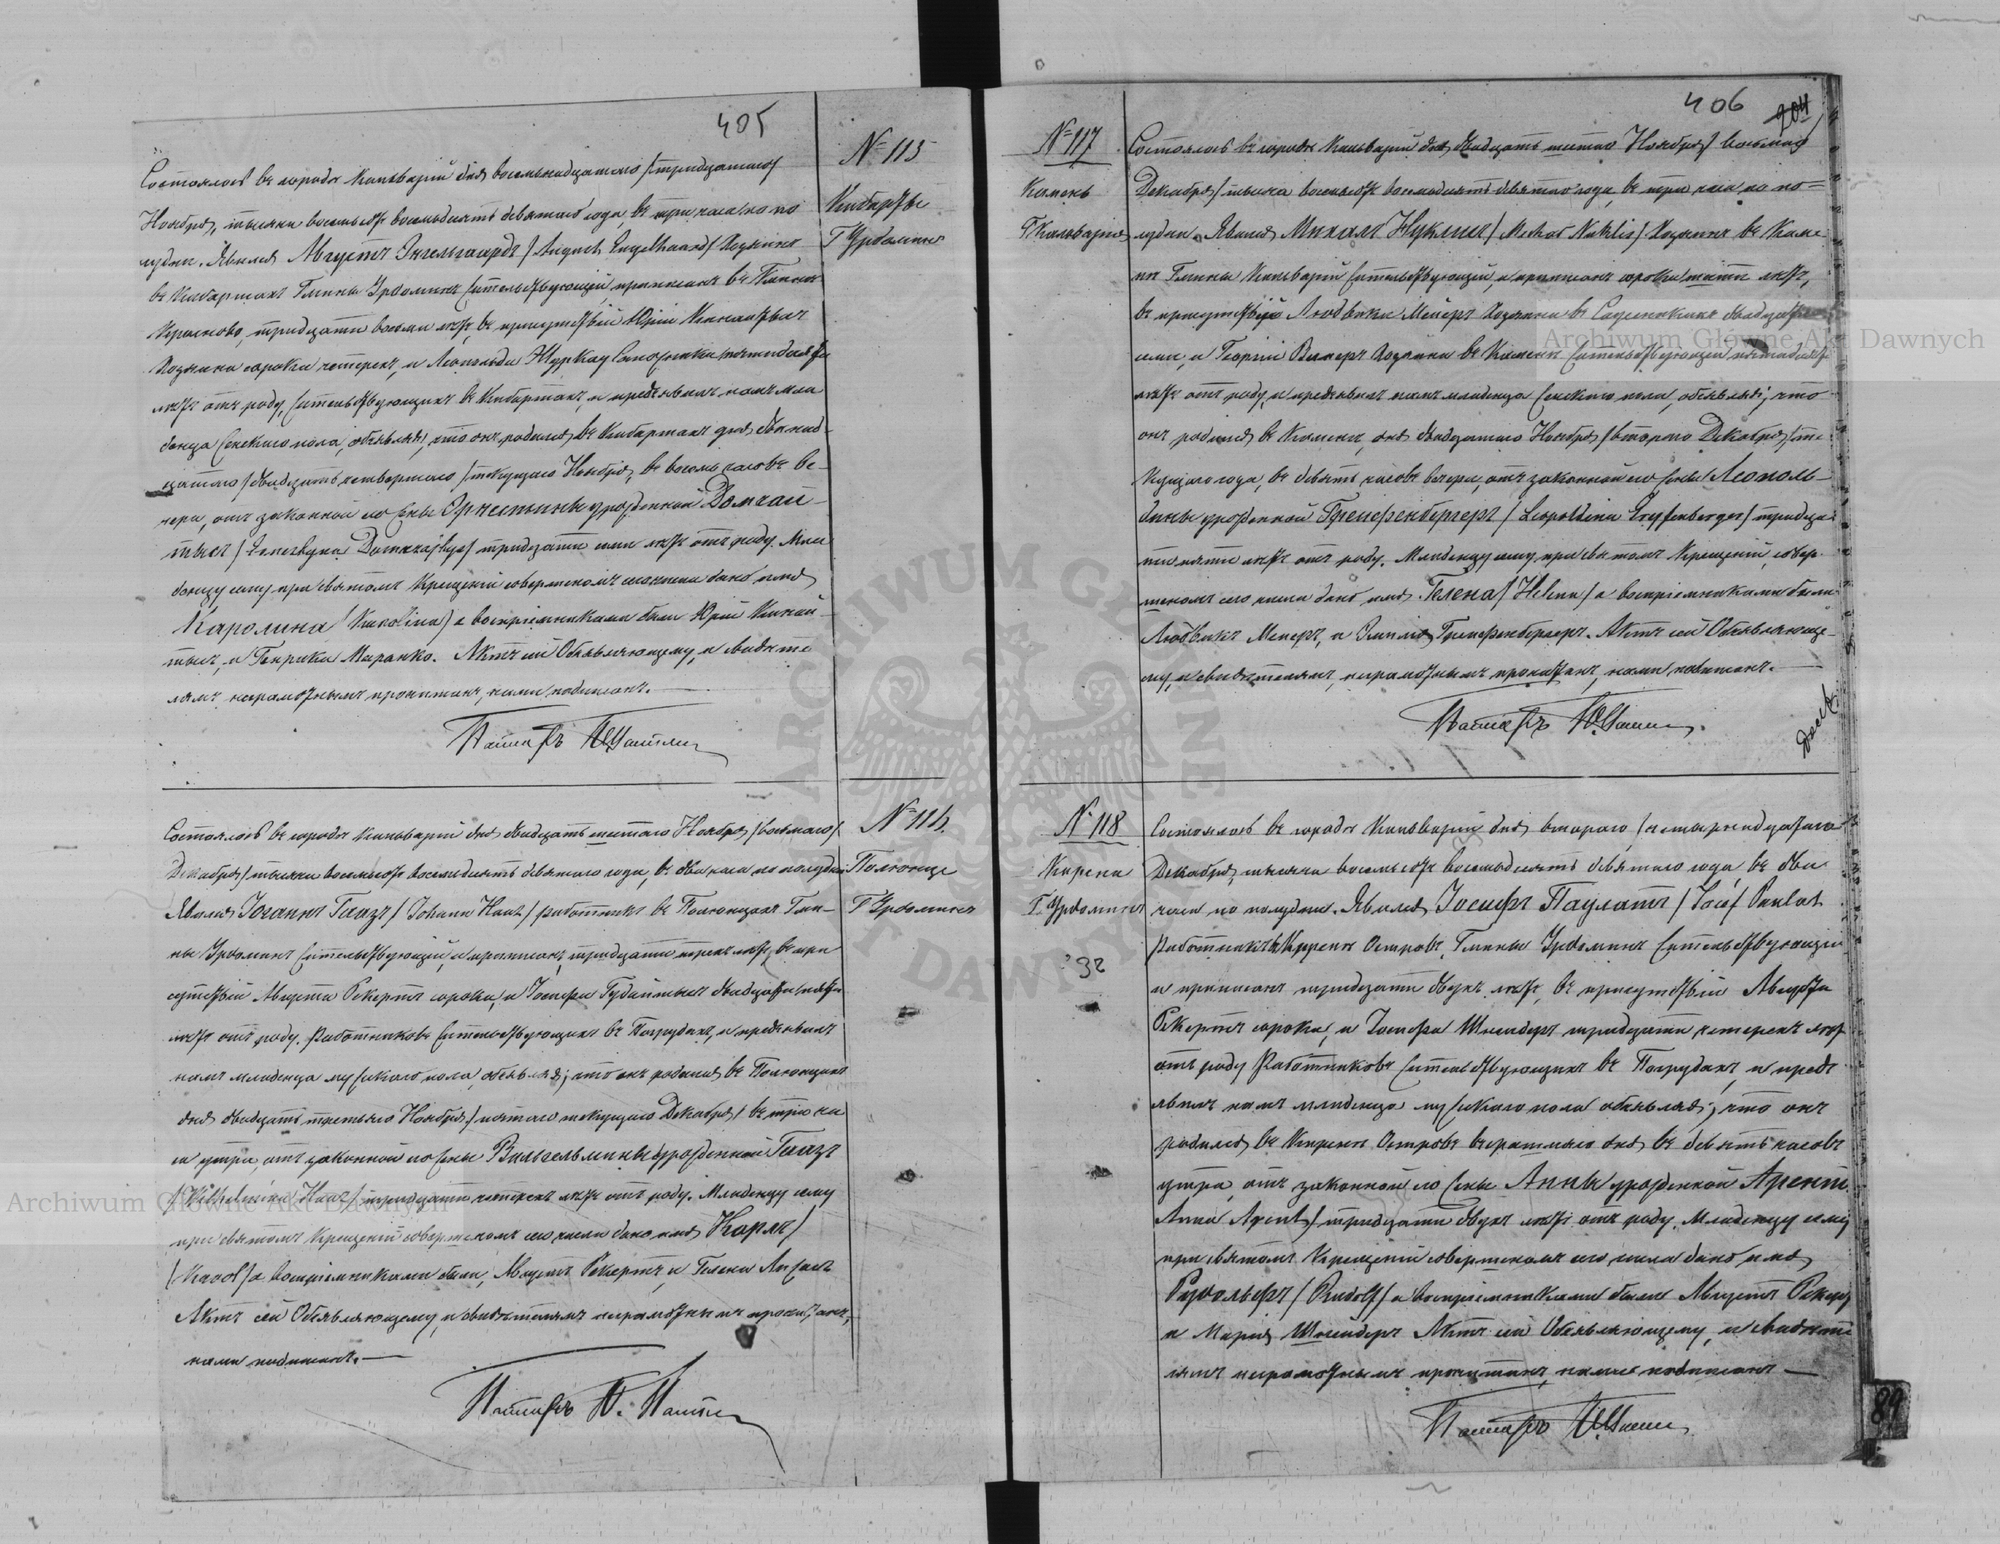 405
№ 115
Кибарты
Г Урдомин
Состоялось въ городѣ Кальваріи дня восемьнадцатаго /тридцатаго/
Ноября, тысяча восемьсотъ восемьдесятъ девятаго года въ три часа по по
лудни. Явился Августъ Энгельгаардъ /August Engelhaard/ Хозяинъ
въ Кибартахъ Гмины Урдоминъ жительствующій приписанъ въ
тридцати восьми лѣтъ, въ присутствіи Юрія
Хозяина сорока четырехъ, и Леопольда
лѣтъ отъ роду, жительствующихъ въ Кибартахъ, и предъявилъ намъ мла
денца женскаго пола, объявляя, что онъ родился въ Кибартахъ дня двѣнад
цатаго /двадцать четвертаго/ текущаго Ноября, въ восемь часовъ ве-
чера, отъ законной его жены Эрнестины урожденной Домкай-
тысъ / тридцати семи лѣтъ отъ роду. Мла
денцу сему при Святомъ Крещеніи совершенномъ сего числа дано имя
Каролина /Karolina/ а воспріемниками были Юрій
тысъ, и Генрика Маранко. Актъ сей Объявляющему, и свидѣте
лямъ неграмотнымъ прочитанъ, нами подписанъ.
Пасторъ
№ 116.
Полюнце
Г Урдоминъ
Состоялось въ городѣ Кальваріи дня двадцать шестаго Ноября /восьмаго/
Декабря/ тысяча восемьсотъ восемьдесятъ девятаго года, въ два часа по полудни
Явился Іоганнъ Гаазъ /Johann Haaz/ работникъ въ Полюнцахъ Гми-
ны Урдоминъ жительствующій, и приписанъ, тридцати трехъ лѣтъ, въ при
сутствіи Августа Рекертъ сорока, и Іосифа двадцати пяти
лѣтъ отъ роду. Работниковъ жительствующихъ въ Погрудахъ, и предъявилъ
намъ младенца мужскаго пола, объявляя; что онъ родился въ Полюнцахъ
дня двадцать третьяго Ноября /пятаго текущаго Декабря/ въ три ча
са утра, отъ законной его жены Вильгельмины урожденной Гаазъ
/Wilhelmina Haaz/ тридцати четырехъ лѣтъ отъ роду. Младенцу сему
при Святомъ Крещеніи совершенномъ сего числа дано имя Карлъ/
/Karol/ а воспріемниками были, Августъ Рекертъ, и Гелена
Актъ сей Объявляющему, и свидѣтелямъ неграмотнымъ прочитанъ,
нами подписанъ.
Пасторъ
406
204
№ 117
Камень
Г Кальварія
Состоялось въ городѣ Кальваріи дня двадцать шестаго Ноября /восьмаго
Декабря/ тысяча восемьсотъ восемьдесятъ девятаго года, въ три часа по по-
лудни. Явился Михалъ Нуклисъ /Michał Nuklis/ Хозяинъ въ Каме
нѣ Гмины Кальварія жительствующій, и приписанъ сорока шести лѣтъ,
въ присутствіи Людвика Мейеръ Хозяина въ двадцати
семи, и Георгія Хозяина въ Камени жительствующихъ пятидесяти
лѣтъ отъ роду, и предъявилъ намъ младенца женскаго пола, объявляя; что
онъ родился въ Камени, дня двадцатаго Ноября /втораго Декабря/ те
кущаго года, въ девять часовъ вечера, отъ законной его жены Леополь-
дины урожденной Грейфенбергеръ /Leopoldina Greyfenberger/ тридца
ти пяти лѣтъ отъ роду. Младенцу сему при Святомъ Крещеніи, совер-
шенномъ сего числа дано имя Гелена /Helena/ а воспріемниками были
Людвикъ Мейеръ, и Эмилія Грейфенбергеръ. Актъ сей Объявляюще-
му, и свидѣтелямъ, неграмотнымъ прочитанъ, нами подписанъ.
Пасторъ
№ 118
Кирсна
Г. Урдоминъ
32
Состоялось въ городѣ Кальваріи дня втораго /четырнадцатаго
Декабря, тысяча восемьсотъ восемьдесятъ девятаго года въ два
часа по полудни. Явился Іосифъ Паулатъ /Josef Paulat
Работникъ въ Кирсна Островъ, Гмины Урдоминъ жительствующій
и приписанъ тридцати двухъ лѣтъ, въ присутствіи Августа
Рекертъ сорока, и Іосифа Шнейдеръ тридцати четырехъ лѣтъ
отъ роду Работниковъ жительствующихъ въ Погрудахъ, и предъ
явилъ намъ младенца мужскаго пола объявляя; что онъ
родился въ Кирсна Островъ вчерашняго дня въ девять часовъ
утра, отъ законной его жены Анны урожденной Арентъ
Anna Arent/ тридцати двухъ лѣтъ отъ роду. Младенцу сему
при Святомъ Крещеніи совершенномъ сего числа дано имя
Рудольфъ /Rudolf/ а воспріемниками были Августъ Рекертъ
и Марія Шнейдеръ Актъ сей Объявляющему, и свидѣте
лямъ неграмотнымъ прочитанъ, нами подписанъ
Пасторъ
89
Archiwum Główne Akt Dawnych
Archiwum Główne Akt Dawnych
ARCHIWUM GŁÓWNE AKT DAWNYCH